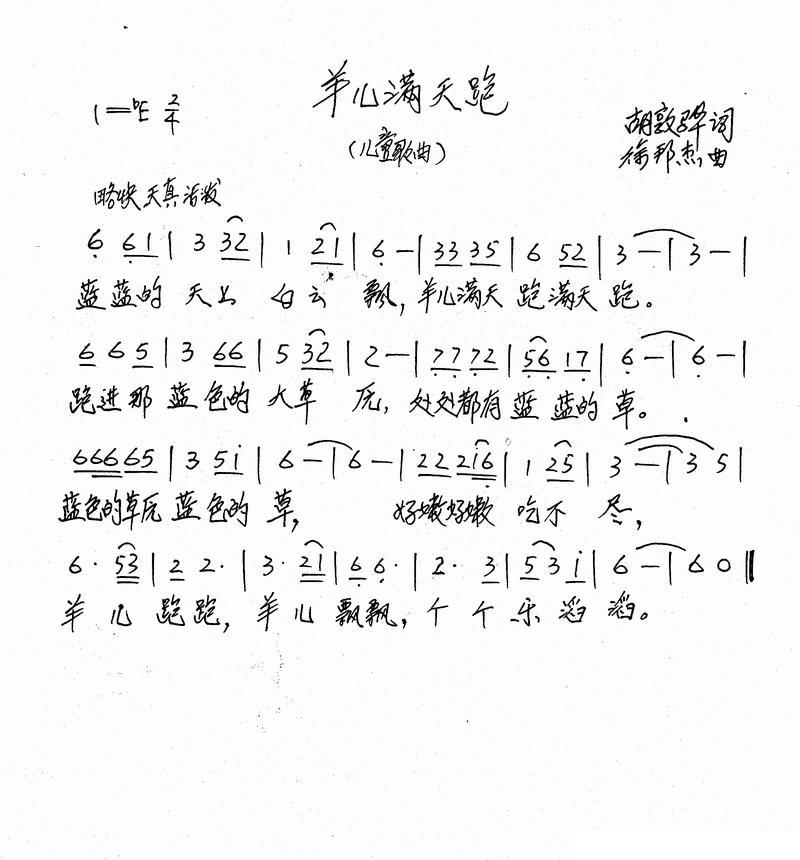 羊儿满天跑
1=♭E 2/4
(儿童歌曲)
胡敦骅词
徐邦杰曲
略快 天真活泼
6 61 | 3 32 | 1 21 | 6 — | 33 35 | 6 52 | 3 — | 3 — |
蓝蓝的 天上 白云 飘, 羊儿满天 跑满天 跑。
6 6 5 | 3 66 | 5 32 | 2 — | 77 72 | 56 17 | 6 — | 6 — |
跑进那 蓝色的 大草 原, 处处都有 蓝 蓝的 草。
66665 | 3 5i | 6 — | 6 — | 22 2i6 | 1 25 | 3 — | 3 5 |
蓝色的草原 蓝色的 草, 好嫩好嫩 吃不 尽,
6· 53 | 2 2· | 3· 21 | 6 6· | 2· 3 | 5 3 i | 6 — | 6 0 ‖
羊 儿 跑跑, 羊 儿 飘飘, 个 个 乐 滔 滔。